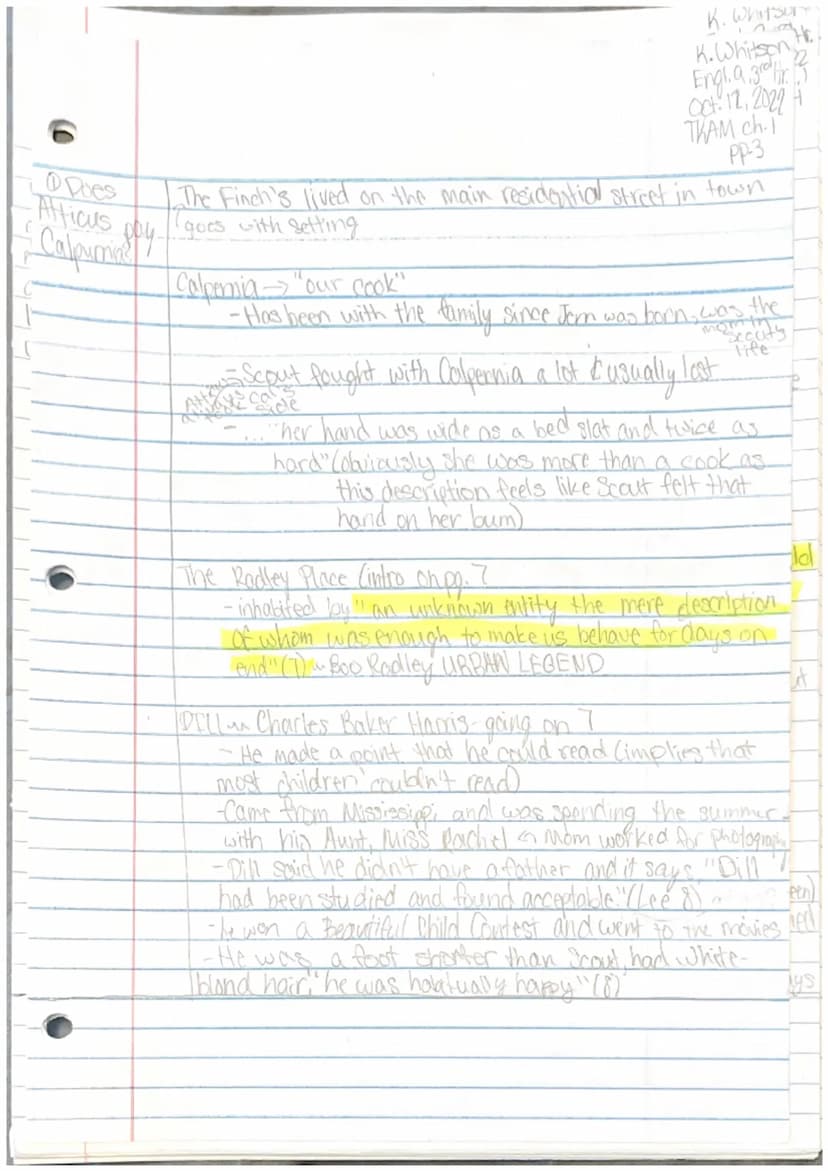 K. Whitson
K. Whitson
Engl. 9, 3rd Hr.
Oct. 12, 2022
TKAM ch. 1
pp. 3
① Does
Atticus pay
Calpurnia?
The Finch's lived on the main residential street in town
goes with setting
Calpernia → "our cook"
- Has been with the family since Jem was born, was the
mom in
Scout's
life
- Scout fought with Calpernia a lot & usually lost
Atticus
always
took Cal's
side
- ... "her hand was wide as a bed slat and twice as
hard" (obviously she was more than a cook as
this description feels like Scout felt that
hand on her bum)
The Radley Place (intro on pg. 7
- inhabited by "an unknown entity the mere description
of whom was enough to make us behave for days on
end" (7) Boo Radley URBAN LEGEND
DILL Charles Baker Harris - going on 7
- He made a point that he could read (implies that
most children couldn't read)
- Came from Mississippi and was spending the summer
with his Aunt, Miss Rachel Mom worked for photograph
- Dill said he didn't have a father and it says, "Dill
had been studied and found acceptable." (Lee 8)
- he won a Beautiful Child Contest and went to the movies
- He was a foot shorter than Scout, had white-
blond hair, "he was habitually happy" (8)